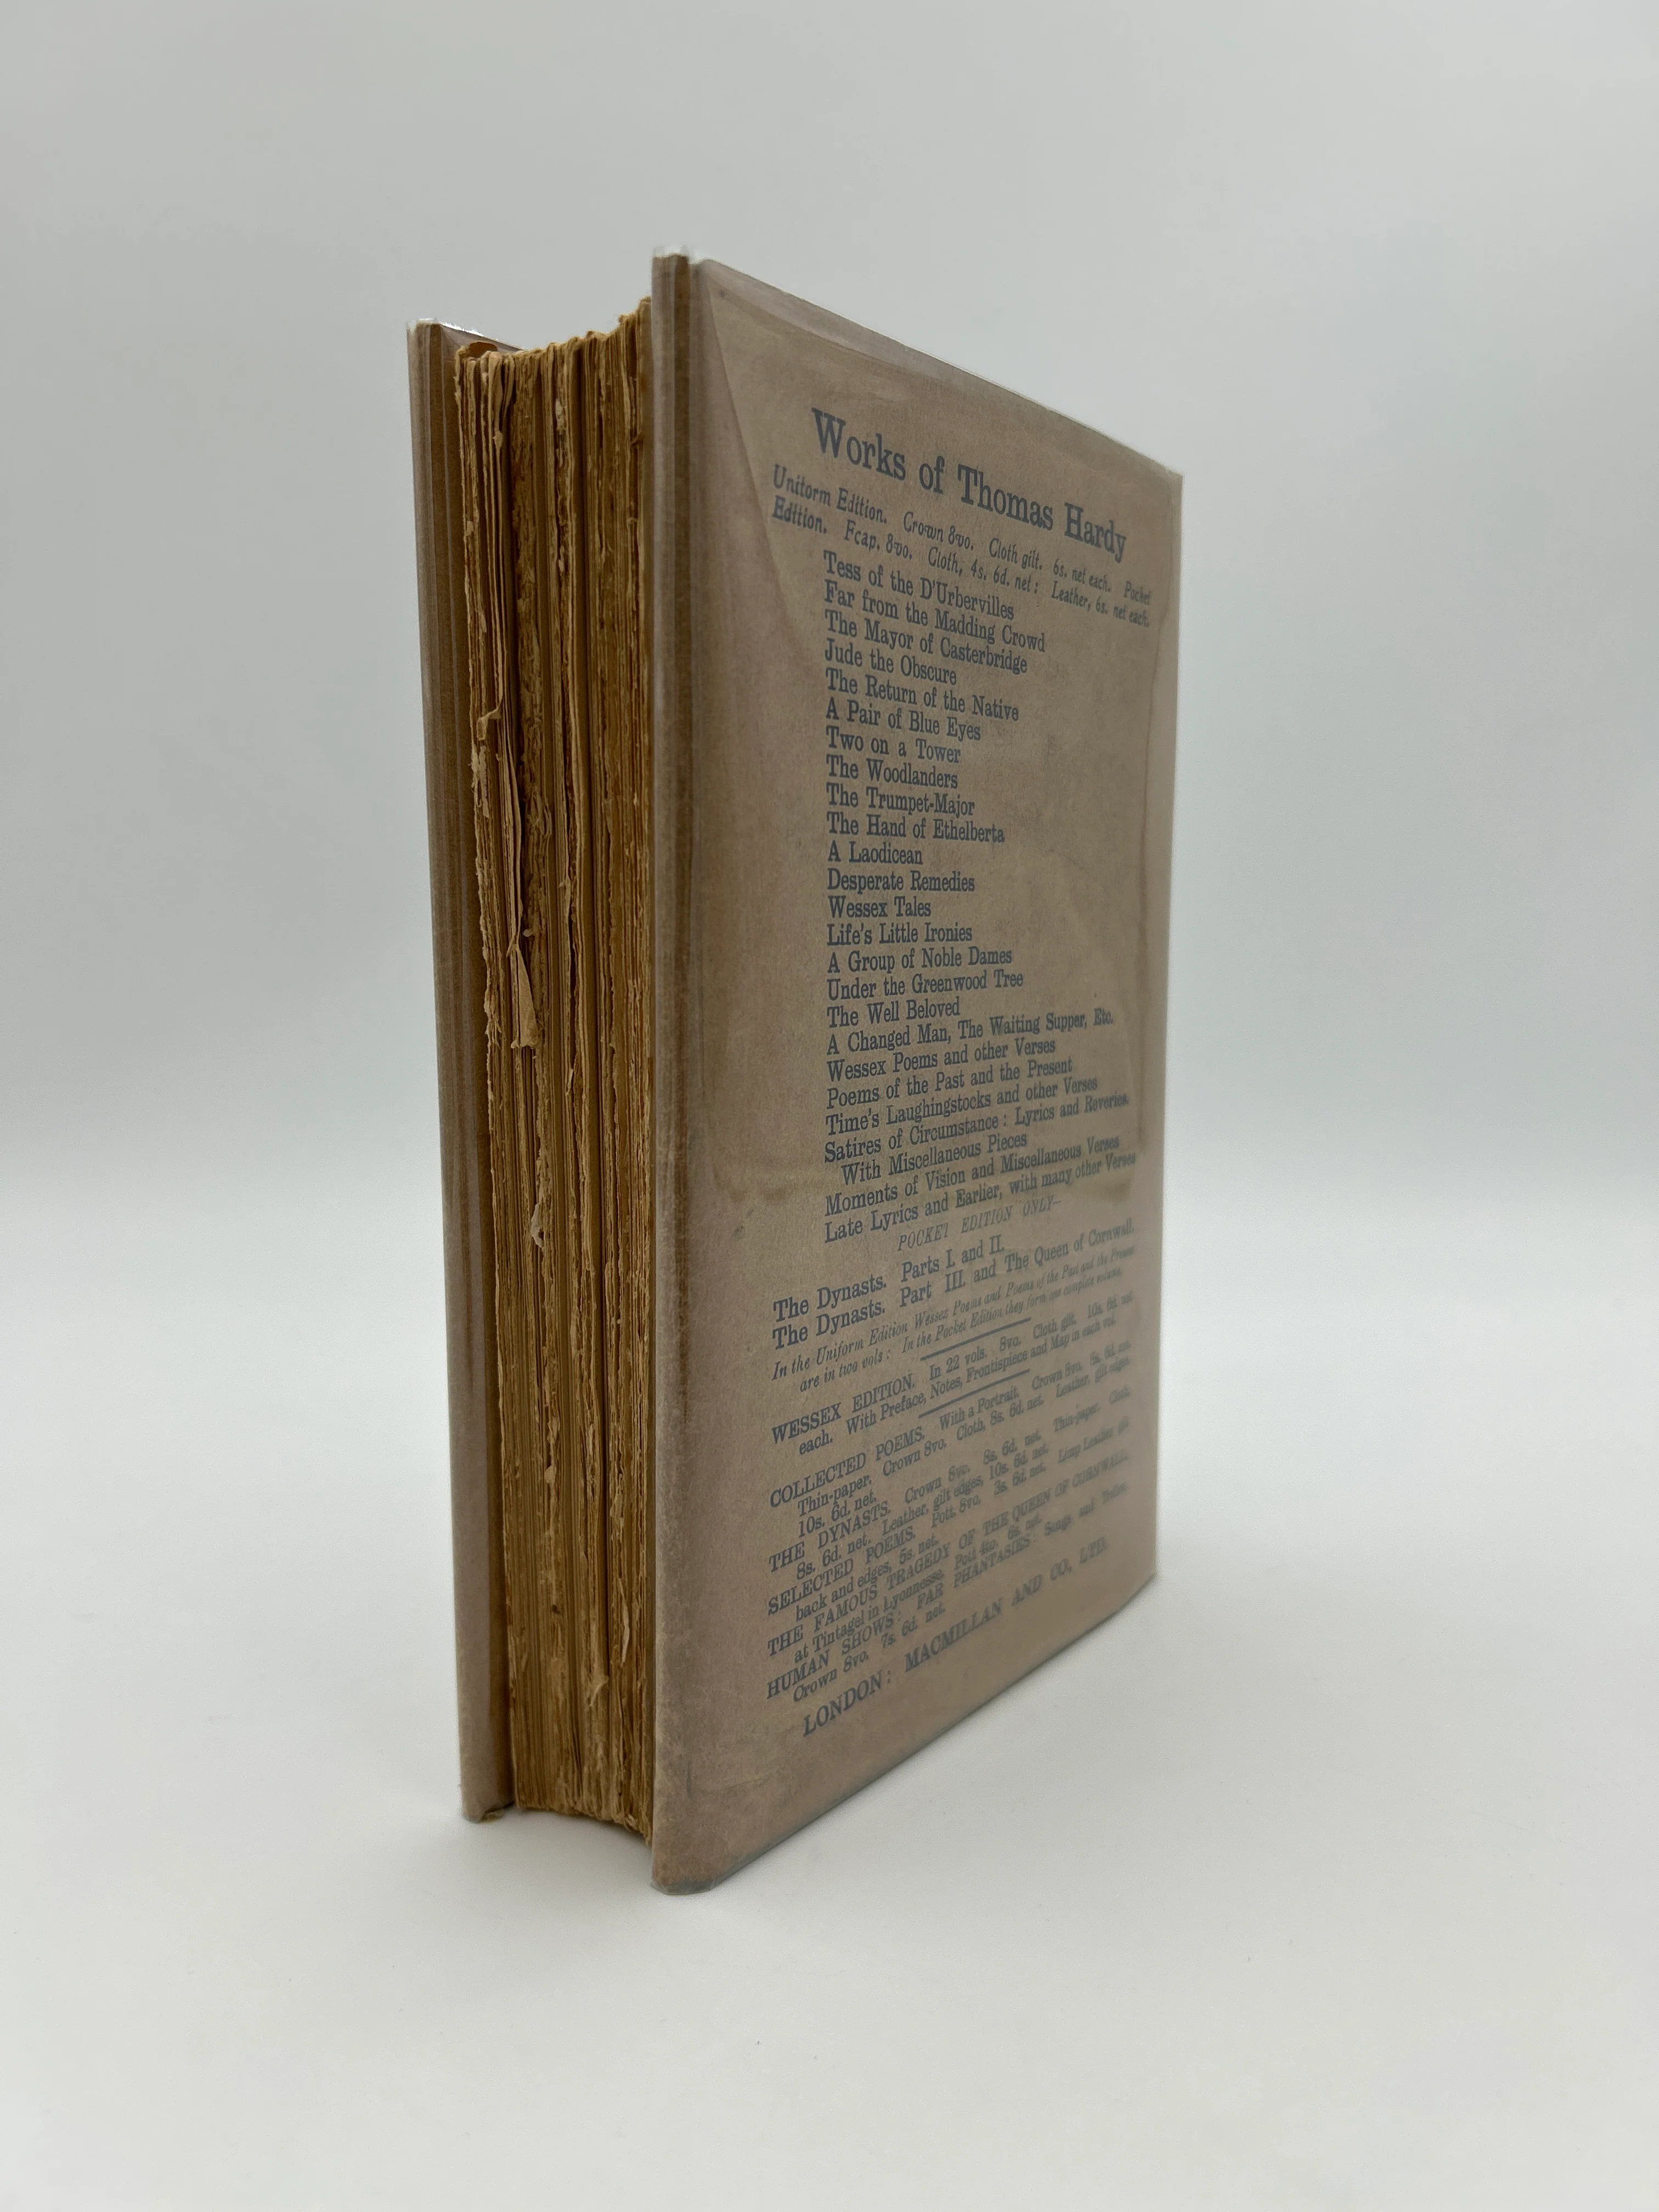 Works of Thomas Hardy
Uniform Edition. Crown 8vo. Cloth gilt. 6s. net each. Pocket
Edition. Fcap. 8vo. Cloth, 4s. 6d. net: Leather, 6s. net each.
Tess of the D'Urbervilles
Far from the Madding Crowd
The Mayor of Casterbridge
Jude the Obscure
The Return of the Native
A Pair of Blue Eyes
Two on a Tower
The Woodlanders
The Trumpet-Major
The Hand of Ethelberta
A Laodicean
Desperate Remedies
Wessex Tales
Life's Little Ironies
A Group of Noble Dames
Under the Greenwood Tree
The Well Beloved
A Changed Man, The Waiting Supper, Etc.
Wessex Poems and other Verses
Poems of the Past and the Present
Time's Laughingstocks and other Verses
Satires of Circumstance: Lyrics and Reveries.
With Miscellaneous Pieces
Moments of Vision and Miscellaneous Verses
Late Lyrics and Earlier, with many other Verses
POCKET EDITION ONLY—
The Dynasts. Parts I. and II.
The Dynasts. Part III. and The Queen of Cornwall.
In the Uniform Edition Wessex Poems and Poems of the Past and the Present
are in two vols: In the Pocket Edition they form one complete volume.
WESSEX EDITION. In 22 vols. 8vo. Cloth gilt. 10s. 6d. net
each. With Preface, Notes, Frontispiece and Map in each vol.
COLLECTED POEMS. With a Portrait. Crown 8vo. 8s. 6d. net.
Thin-paper. Crown 8vo. Cloth, 8s. 6d. net. Leather, gilt edges,
10s. 6d. net.
THE DYNASTS. Crown 8vo. 8s. 6d. net. Thin-paper. Cloth,
8s. 6d. net. Leather, gilt edges, 10s. 6d. net.
SELECTED POEMS. Pott. 8vo. 3s. 6d. net. Limp Leather gilt
back and edges, 5s. net.
THE FAMOUS TRAGEDY OF THE QUEEN OF CORNWALL,
at Tintagel in Lyonnesse. Pott 4to. 6s. net.
HUMAN SHOWS: FAR PHANTASIES: Songs and Trifles.
Crown 8vo. 7s. 6d. net.
LONDON: MACMILLAN AND CO., LTD.